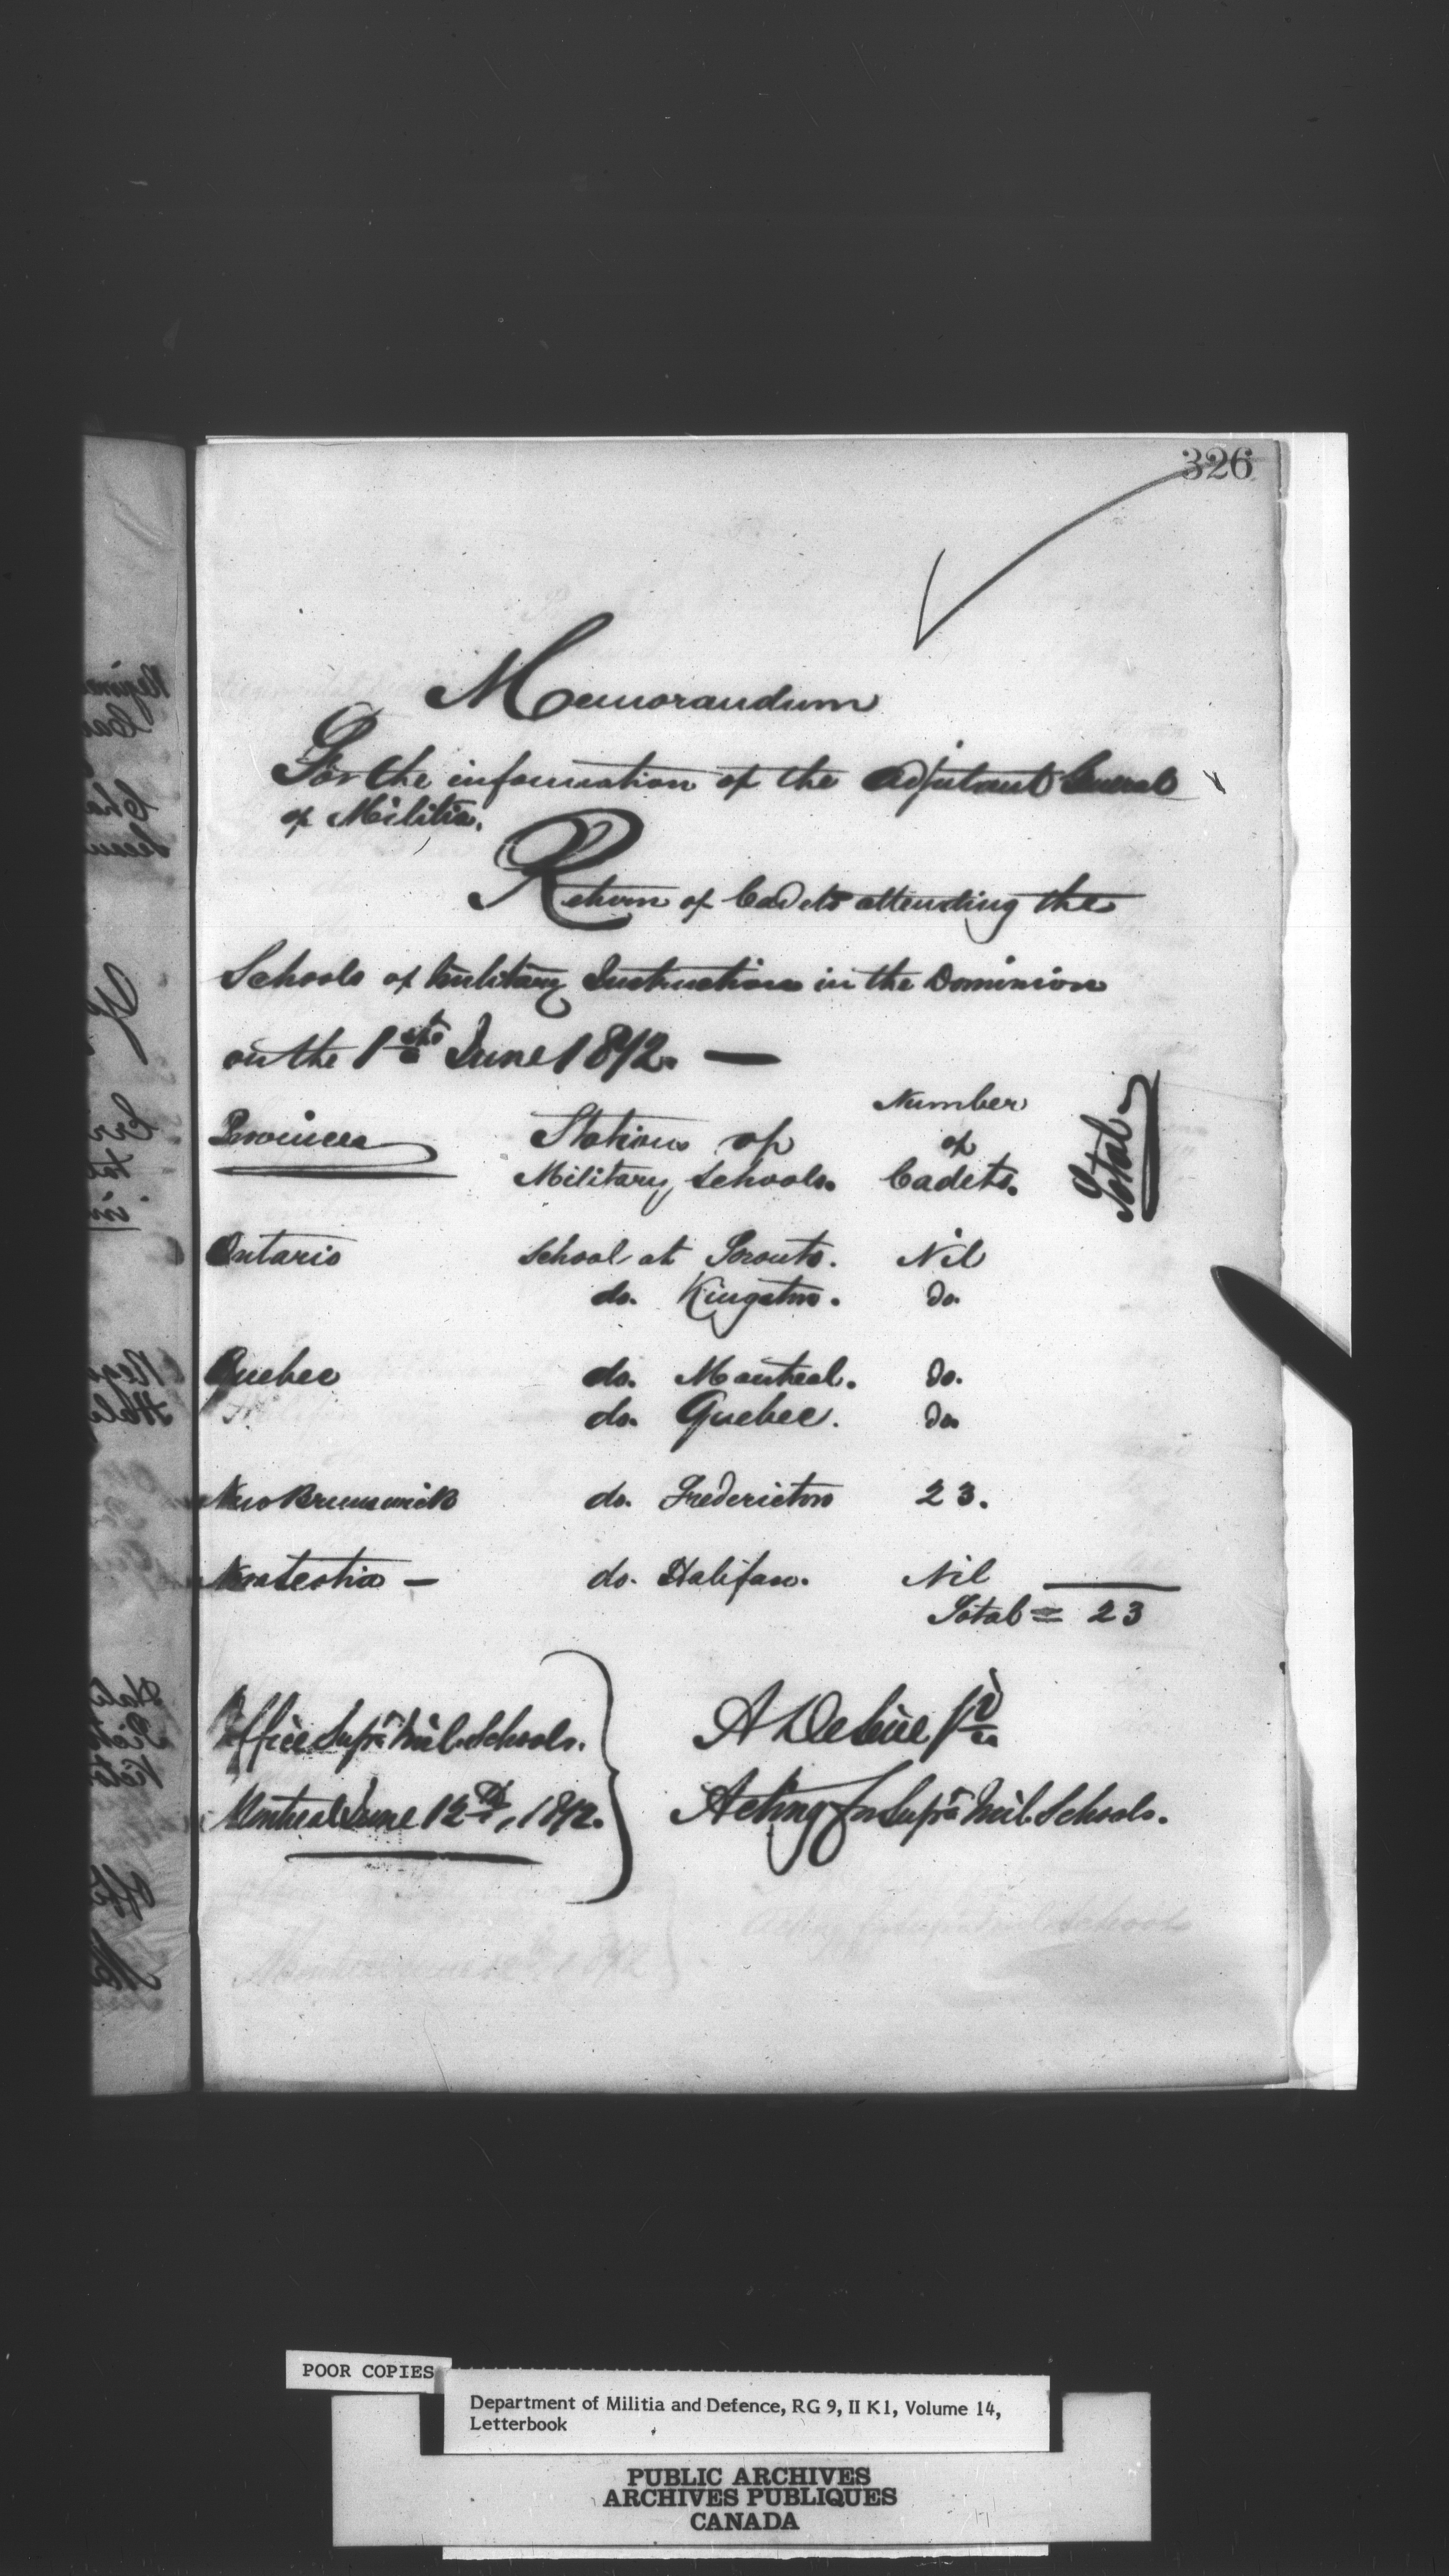 326
Memorandum
For the information of the Adjutant General
of Militia.
Return of Cadets attending the
Schools of Military Instruction in the Dominion
on the 1st June 1872. —
Provinces Stations of Number of Total
Military Schools. Cadets.
Ontario School at Toronto. Nil
do. Kingston. do.
Quebec do. Montreal. do.
do. Quebec. do.
New Brunswick do. Fredericton 23.
Nova Scotia — do. Halifax. Nil
Total = 23
Office Supt Mil. Schools. A
Montreal June 12th, 1872. Acting for Supt Mil. Schools.
POOR COPIES
Department of Militia and Defence, RG 9, II K1, Volume 14,
Letterbook
PUBLIC ARCHIVES
ARCHIVES PUBLIQUES
CANADA